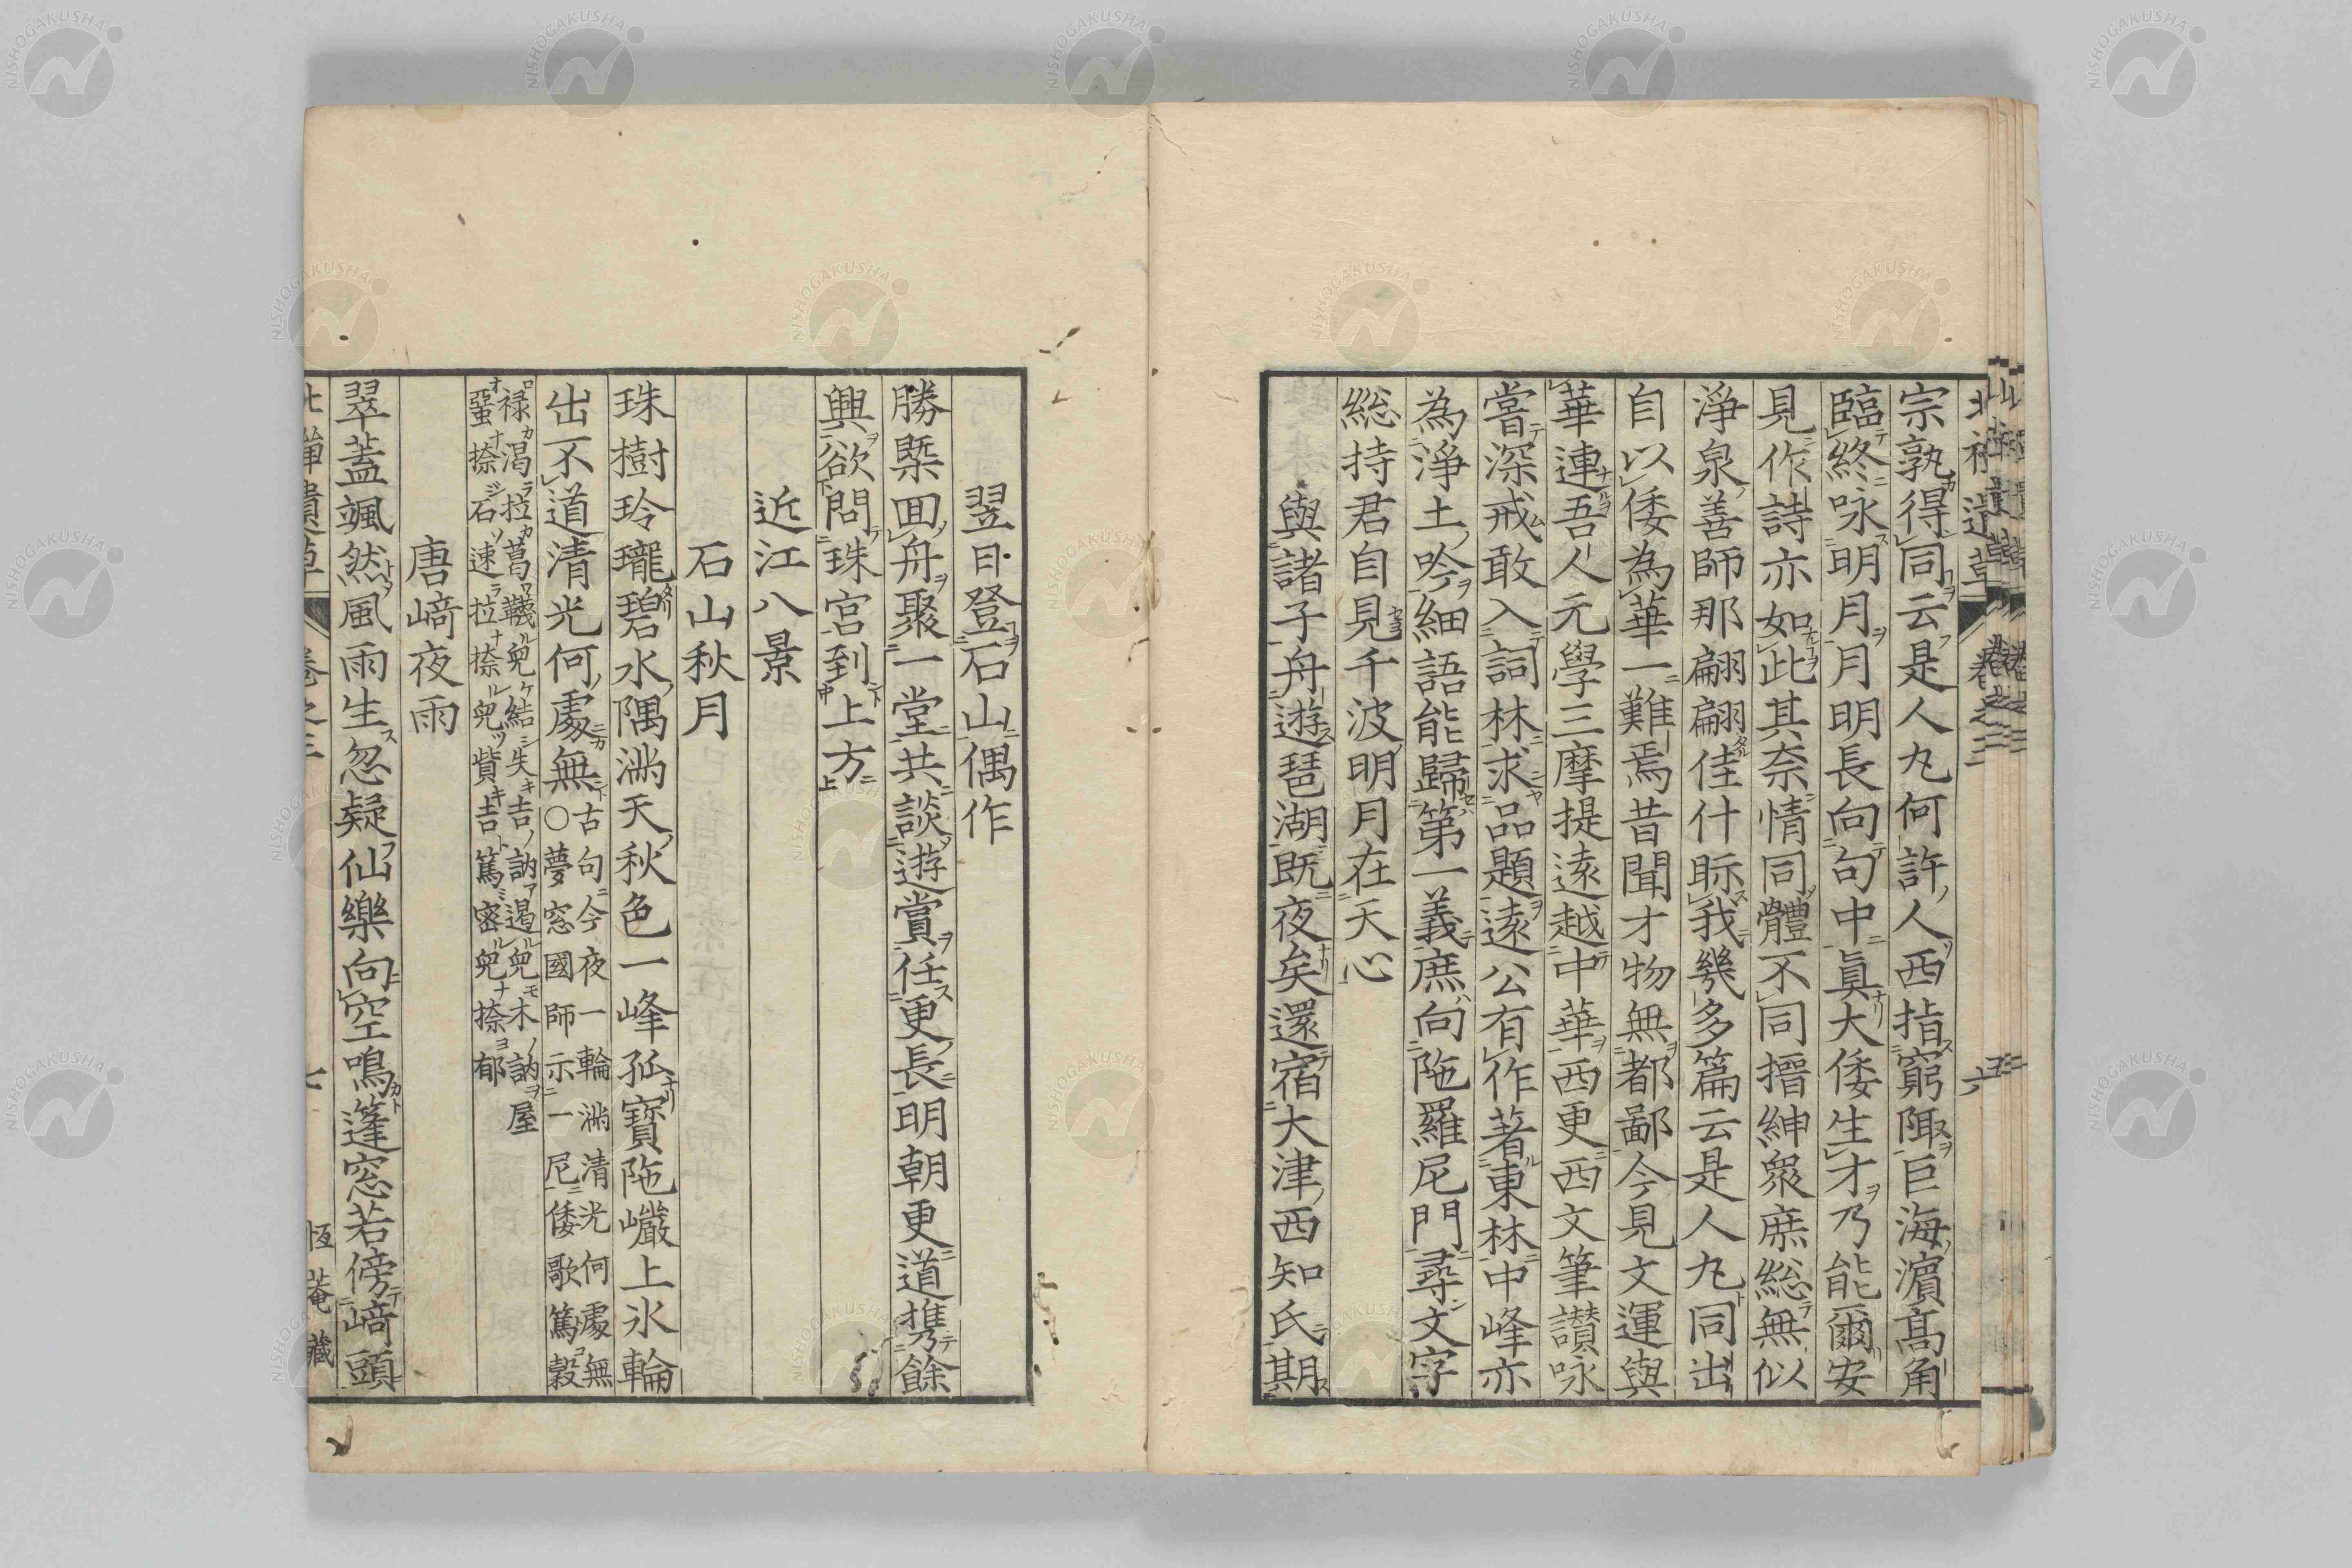 宗孰得同云是人丸何許人西指窮陬巨海濵髙角
臨終咏明月月明長向句中眞大倭生才乃能爾安
見作詩亦如此其奈情同體不同搢紳衆庶總無似
淨泉善師那翩翩佳什眎我幾多篇云是人丸同出
自以倭為華一難焉昔聞才物無都鄙今見文運與
華連吾人元學三摩提遠越中華西更西文筆讃咏
嘗深戒敢入詞林求品題遠公有作著東林中峰亦
為淨土吟細語能歸第一義庶向陁羅尼門尋文字
総持君自見千波明月在天心
與諸子舟遊琵湖既夜矣還宿大津西知氏期
翌日登石山偶作
勝槩囬舟聚一堂共談遊賞任更長明朝更道携餘
興欲問珠宮到上方
近江八景
石山秋月
珠樹玲瓏碧水隅滿天秋色一峰孤寳陁巗上氷輪
出不道清光何處無
古句今夜一輪滿清光何處無
○夢窓國師示一尼倭歌篤穀
禄渇拉葛韈兜結失吉訥遏兜木訥屋
蠆捺石速拉捺兜貲吉篤密兜捺郁
唐﨑夜雨
翠蓋颯然風雨生忽疑仙樂向空鳴篷窓若傍﨑頭
恆菴藏
NISHOGAKUSHA